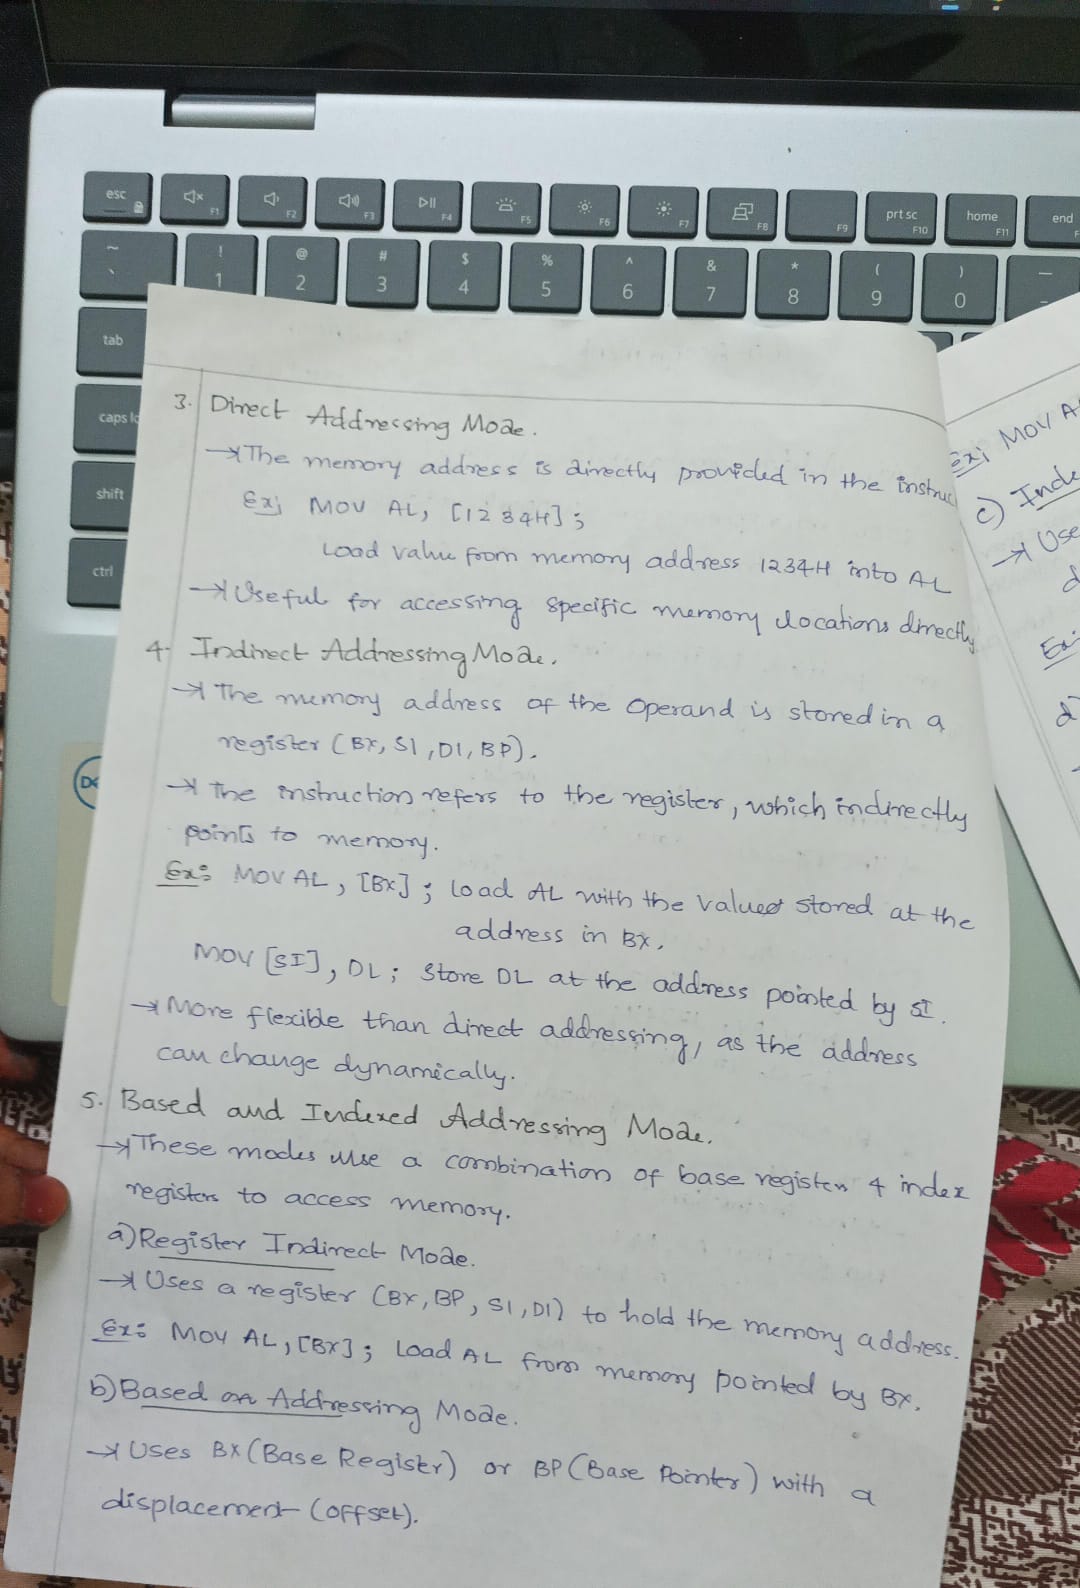 esc
F1
F2
F3
F4
F5
F6
F7
F8
F9
prt sc
F10
home
F11
end
F
~
`
!
1
@
2
#
3
$
4
%
5
^
6
&
7
*
8
(
9
)
0
tab
caps lo
shift
ctrl
3. Direct Addressing Mode.
→ The memory address is directly provided in the instruc
Ex; MOV AL, [1234H];
Load value from memory address 1234H into AL
→ Useful for accessing specific memory locations directly
4. Indirect Addressing Mode.
→ The memory address of the operand is stored in a
register (BX, SI, DI, BP).
→ The instruction refers to the register, which indirectly
points to memory.
Ex: MOV AL, [BX]; load AL with the value stored at the
address in BX.
MOV [SI], DL; Store DL at the address pointed by SI.
→ More flexible than direct addressing, as the address
can change dynamically.
5. Based and Indexed Addressing Mode.
→ These modes use a combination of base register & index
registers to access memory.
a) Register Indirect Mode.
→ Uses a register (BX, BP, SI, DI) to hold the memory address.
Ex: MOV AL, [BX]; Load AL from memory pointed by BX.
b) Based Addressing Mode.
→ Uses BX (Base Register) or BP (Base Pointer) with a
displacement (offset).
Ex; MOV A
c) Inde
→ Use
d
Ex:
d)